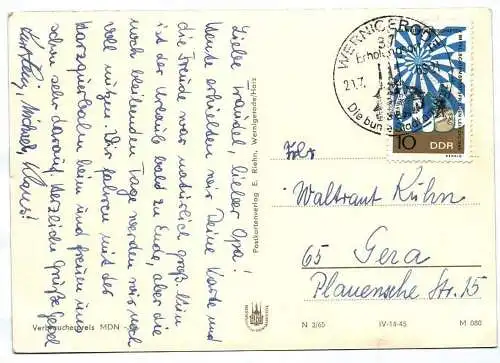 Liebe Traudel, lieber Opa!
Heute erhielten wir Deine Karte und
die Freude war natürlich groß. Nun
ist der Urlaub bald zu Ende, aber die
noch bleibenden Tage werden wir noch
voll nutzen. Wir fahren mit der
Harzquerbahn heim und freuen uns
schon sehr darauf. Herzliche Grüße
Michael, Klaus!
Verbraucherpreis MDN
Postkartenverlag E. Riehn, Wernigerode/Harz
WERNIGERODE
37
Erholungsort
21.7.
Die bunte Stadt am
10 DDR
Waltraut Kühn
65 Gera
Plauensche Str. 15
N 2/65 IV-14-45 M 080